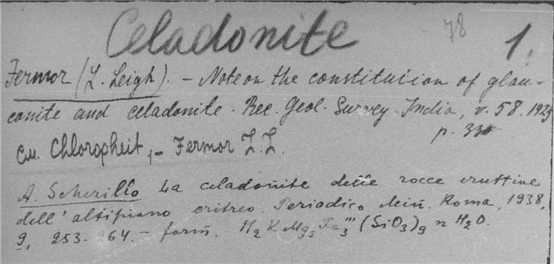 Celadonite 78 1.
Fermor (L. Leigh). - Note on the constitution of glau-
conite and celadonite. Rec. Geol. Survey India, v. 58. 1925
p. 330
См. Chloropheit, - Fermor L.L.
A. Scherillo La celadonite delle rocce eruttive
dell'altipiano eritreo Periodico Min. Roma, 1938,
9, 253-264. - form. H2 K Mg3 Fe3''' (SiO3)9 n H2O.